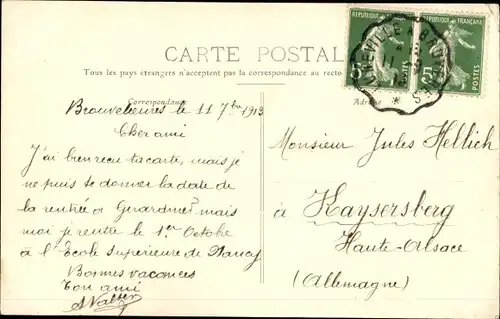 CARTE POSTALE
Tous les pays étrangers n'acceptent pas la correspondance au recto.
Correspondance
Adresse
RÉPUBLIQUE FRANÇAISE
Brouvelieures le 11 7bre 1913
Cher ami
J'ai bien reçu ta carte, mais je
ne puis te donner la date de
la rentrée à Gérardmer mais
moi je rentre le 1er Octobre
à l'École supérieure de Nancy
Bonnes vacances
Ton ami
Monsieur Jules Hellich
à Kaysersberg
Haute-Alsace
(Allemagne)